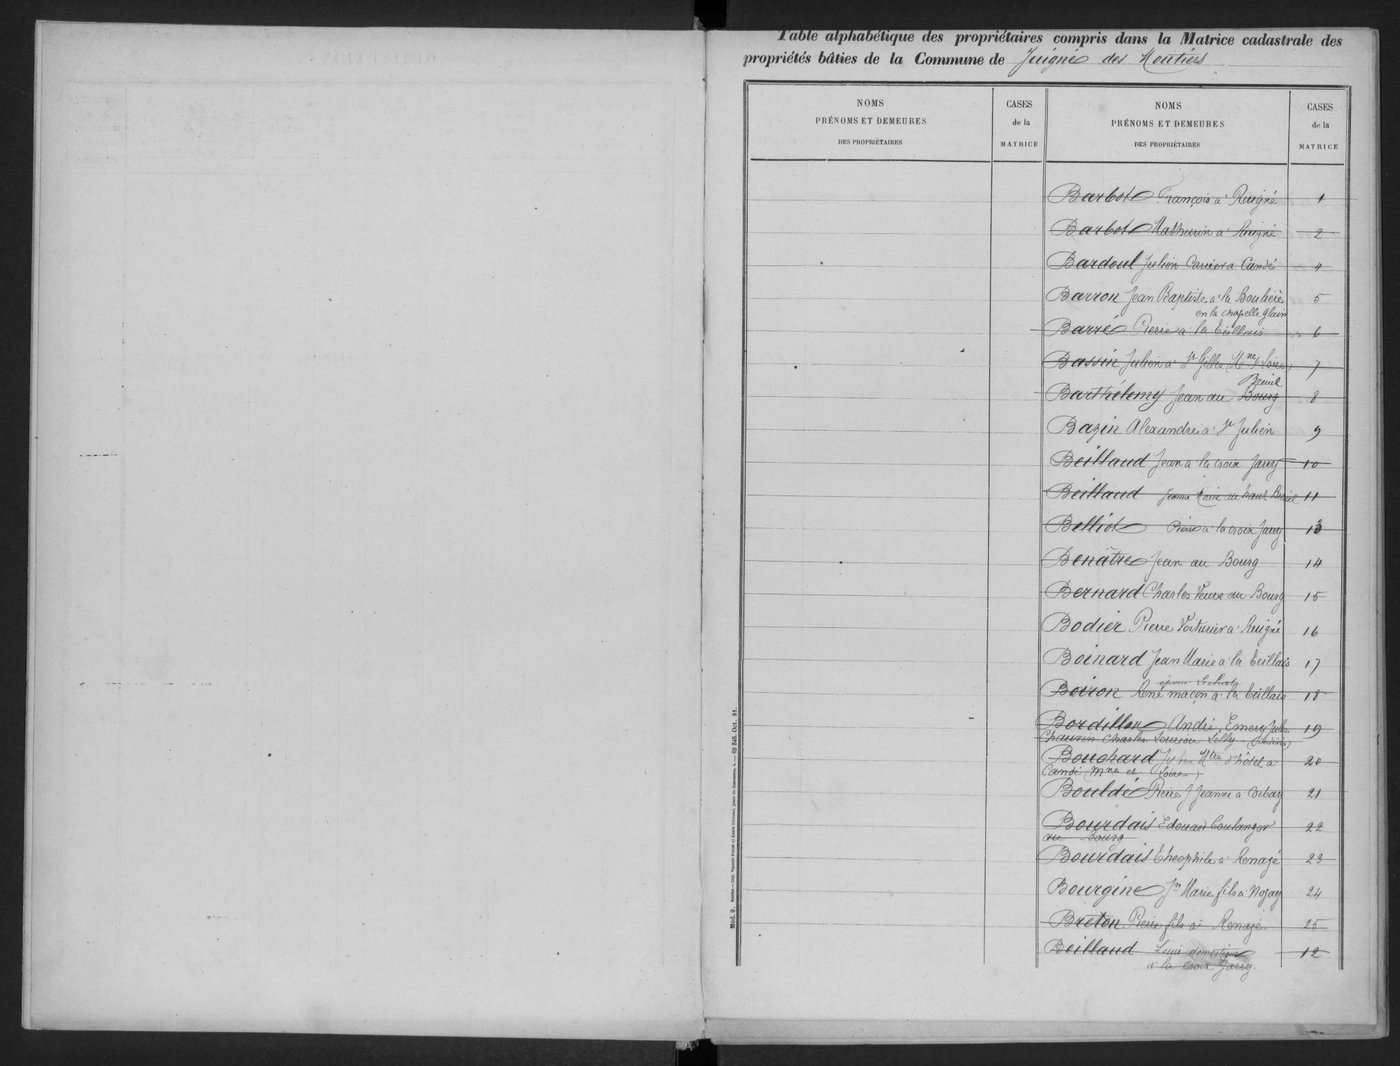 Table alphabétique des propriétaires compris dans la Matrice cadastrale des
propriétés bâties de la Commune de Juigné des Moutiers
NOMS
PRÉNOMS ET DEMEURES
DES PROPRIÉTAIRES
CASES
de la
MATRICE
NOMS
PRÉNOMS ET DEMEURES
DES PROPRIÉTAIRES
CASES
de la
MATRICE
Barbot François à Ruigné 1
Barbot Mathurin à Ruigné 2
Bardoul Julien Carrier à Candé 4
Barron Jean Baptiste à la Boulière 5
en la chapelle Glain
Barré Pierre à la Teillais 6
Bassin Julien à St Gilles (Mne & Loire) 7
Breuil
Barthélemy Jean au Bourg 8
Bazin Alexandre à St Julien 9
Beilland Jean à la croix Jarry 10
Beilland Jeanne Marie au haut Breuil 11
Belliot Pierre à la croix Jarry 13
Benâtre Jean au Bourg 14
Bernard Charles Veuve au Bourg 15
Bodier Pierre Voiturier à Ruigné 16
Boinard Jean Marie à la Teillais 17
époux
Boiron René maçon à la Teillais 18
Bordillon André, Emery Jules 19
Chauvin Charles
Bouchard Mtre d'hôtel à 20
Candé (Mne et Loire)
Bouldé Pierre Jeanne à Corbay 21
Bourdais Edouard Boulanger 22
au Bourg
Bourdais Théophile à Renazé 23
Bourgine Jn Marie fils à Nozay 24
Breton Pierre fils à Renazé 25
Beilland Louis domestique 12
à la croix Jarry.
Mod. 9.